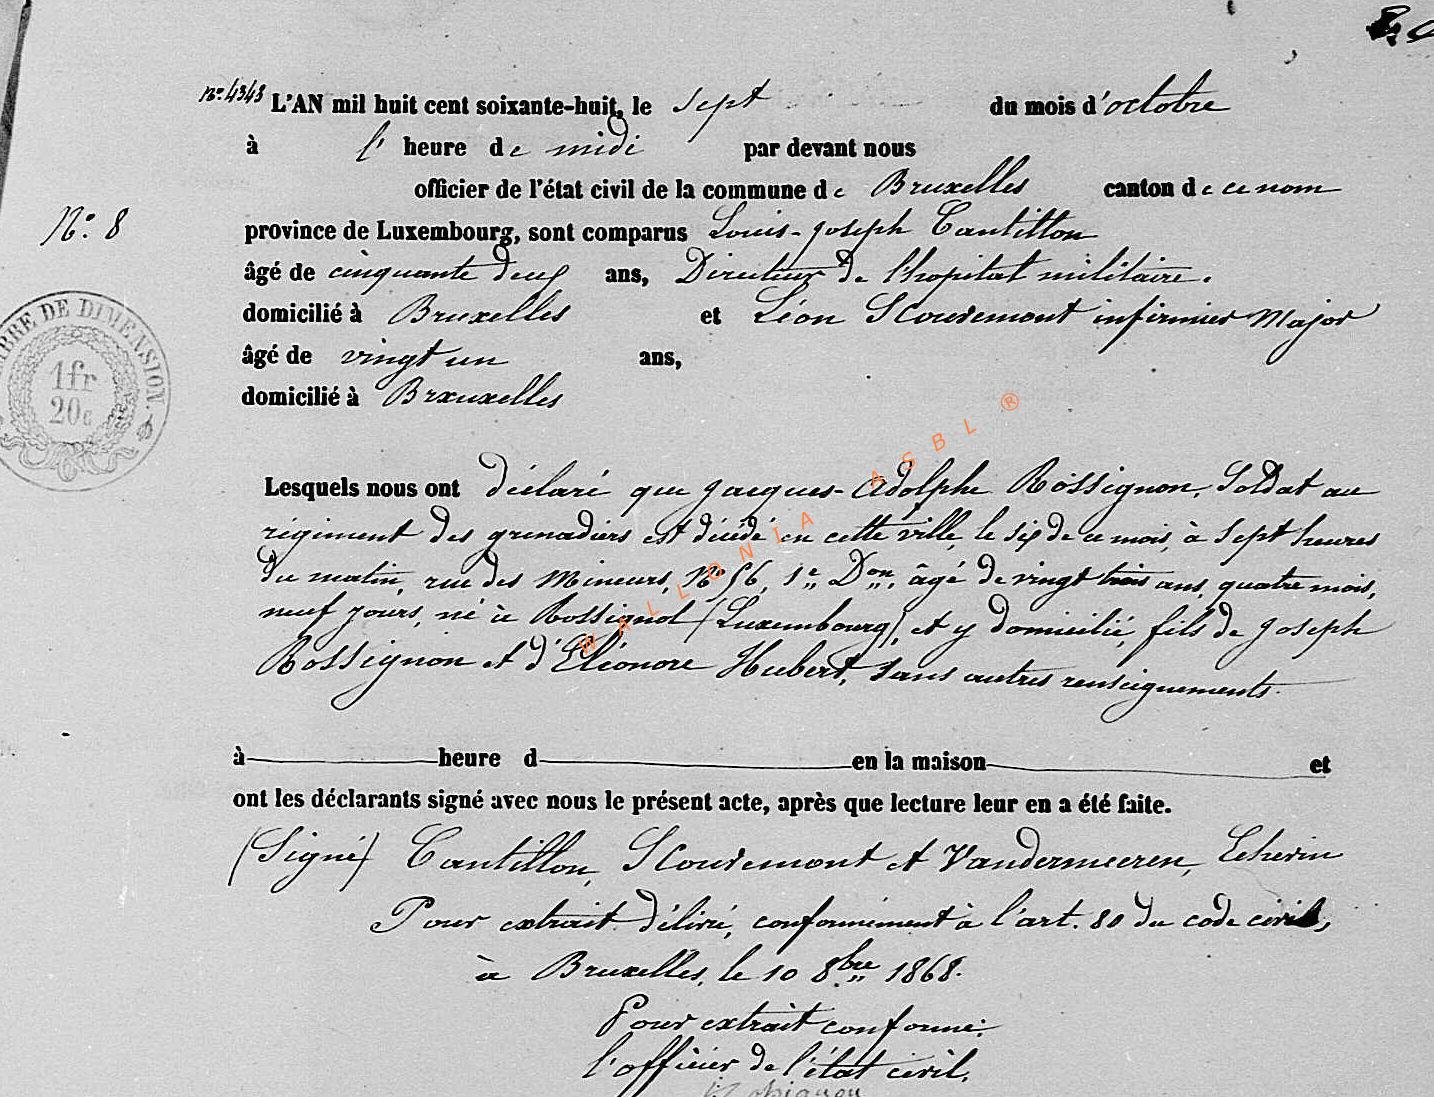 No. 4343 L'AN mil huit cent soixante-huit, le sept du mois d'octobre
à l' heure de midi par devant nous
officier de l'état civil de la commune de Bruxelles canton de ce nom
No. 8
province de Luxembourg, sont comparus Louis-Joseph Cantillon
âgé de cinquante deux ans, Directeur de l'hopital militaire.
domicilié à Bruxelles et Léon Scouremont infirmier Major
âgé de vingt un ans,
domicilié à Brxuxelles
TIMBRE DE DIMENSION.
1fr
20c
Lesquels nous ont déclaré que Jacques-Adolphe Rossignon, Soldat au
régiment des grenadiers est décédé en cette ville, le six de ce mois, à sept heures
du matin, rue des Mineurs, No. 56, 1e Don, âgé de vingt trois ans, quatre mois,
neuf jours, né à Rossignol (Luxembourg), et y domicilié, fils de Joseph
Rossignon et d'Eléonore Hubert, sans autres renseignements.
à heure d en la maison et
ont les déclarants signé avec nous le présent acte, après que lecture leur en a été faite.
(Signé) Cantillon, Scouremont et Vandermeeren, Echevin
Pour extrait délivré, conformément à l'art. 80 du code civil,
à Bruxelles, le 10 8bre 1868.
Pour extrait conforme:
l'officier de l'état civil,
WALLONIA ASBL ®